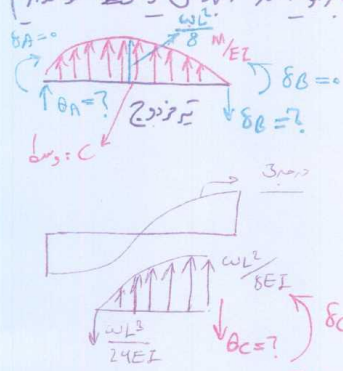 δA=0
ωL²/8
M/EI
θA=?
δB=0
δB=?
تیر مزدوج
وسط: C
درجه 3
ωL²/8EI
ωL³/24EI
θC=?
δC